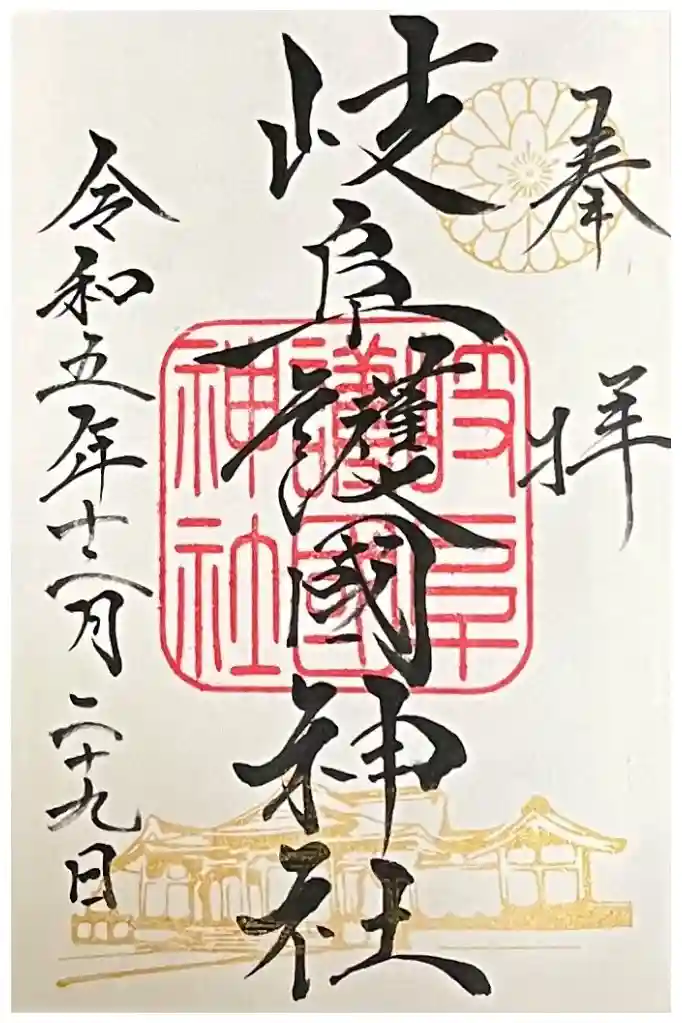 奉拝
岐阜護國神社
岐阜
護國
神社
令和五年十二月二十九日